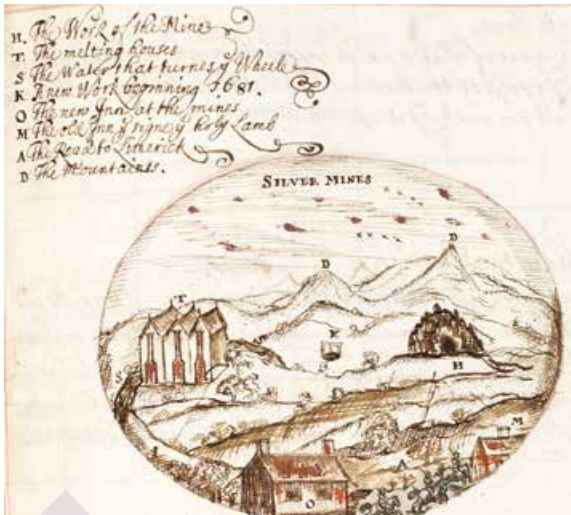 H. The Work of the Mine
T. The melting houses
S The Water that turnes y Wheele
K A new Work beginning 1681.
O The new Inn at the mines
M The old Inn y signe y holy Lamb
A The Road to Litherick
D The Mountains.
SILVER MINES
D
D
T
K
H
S
M
A
O